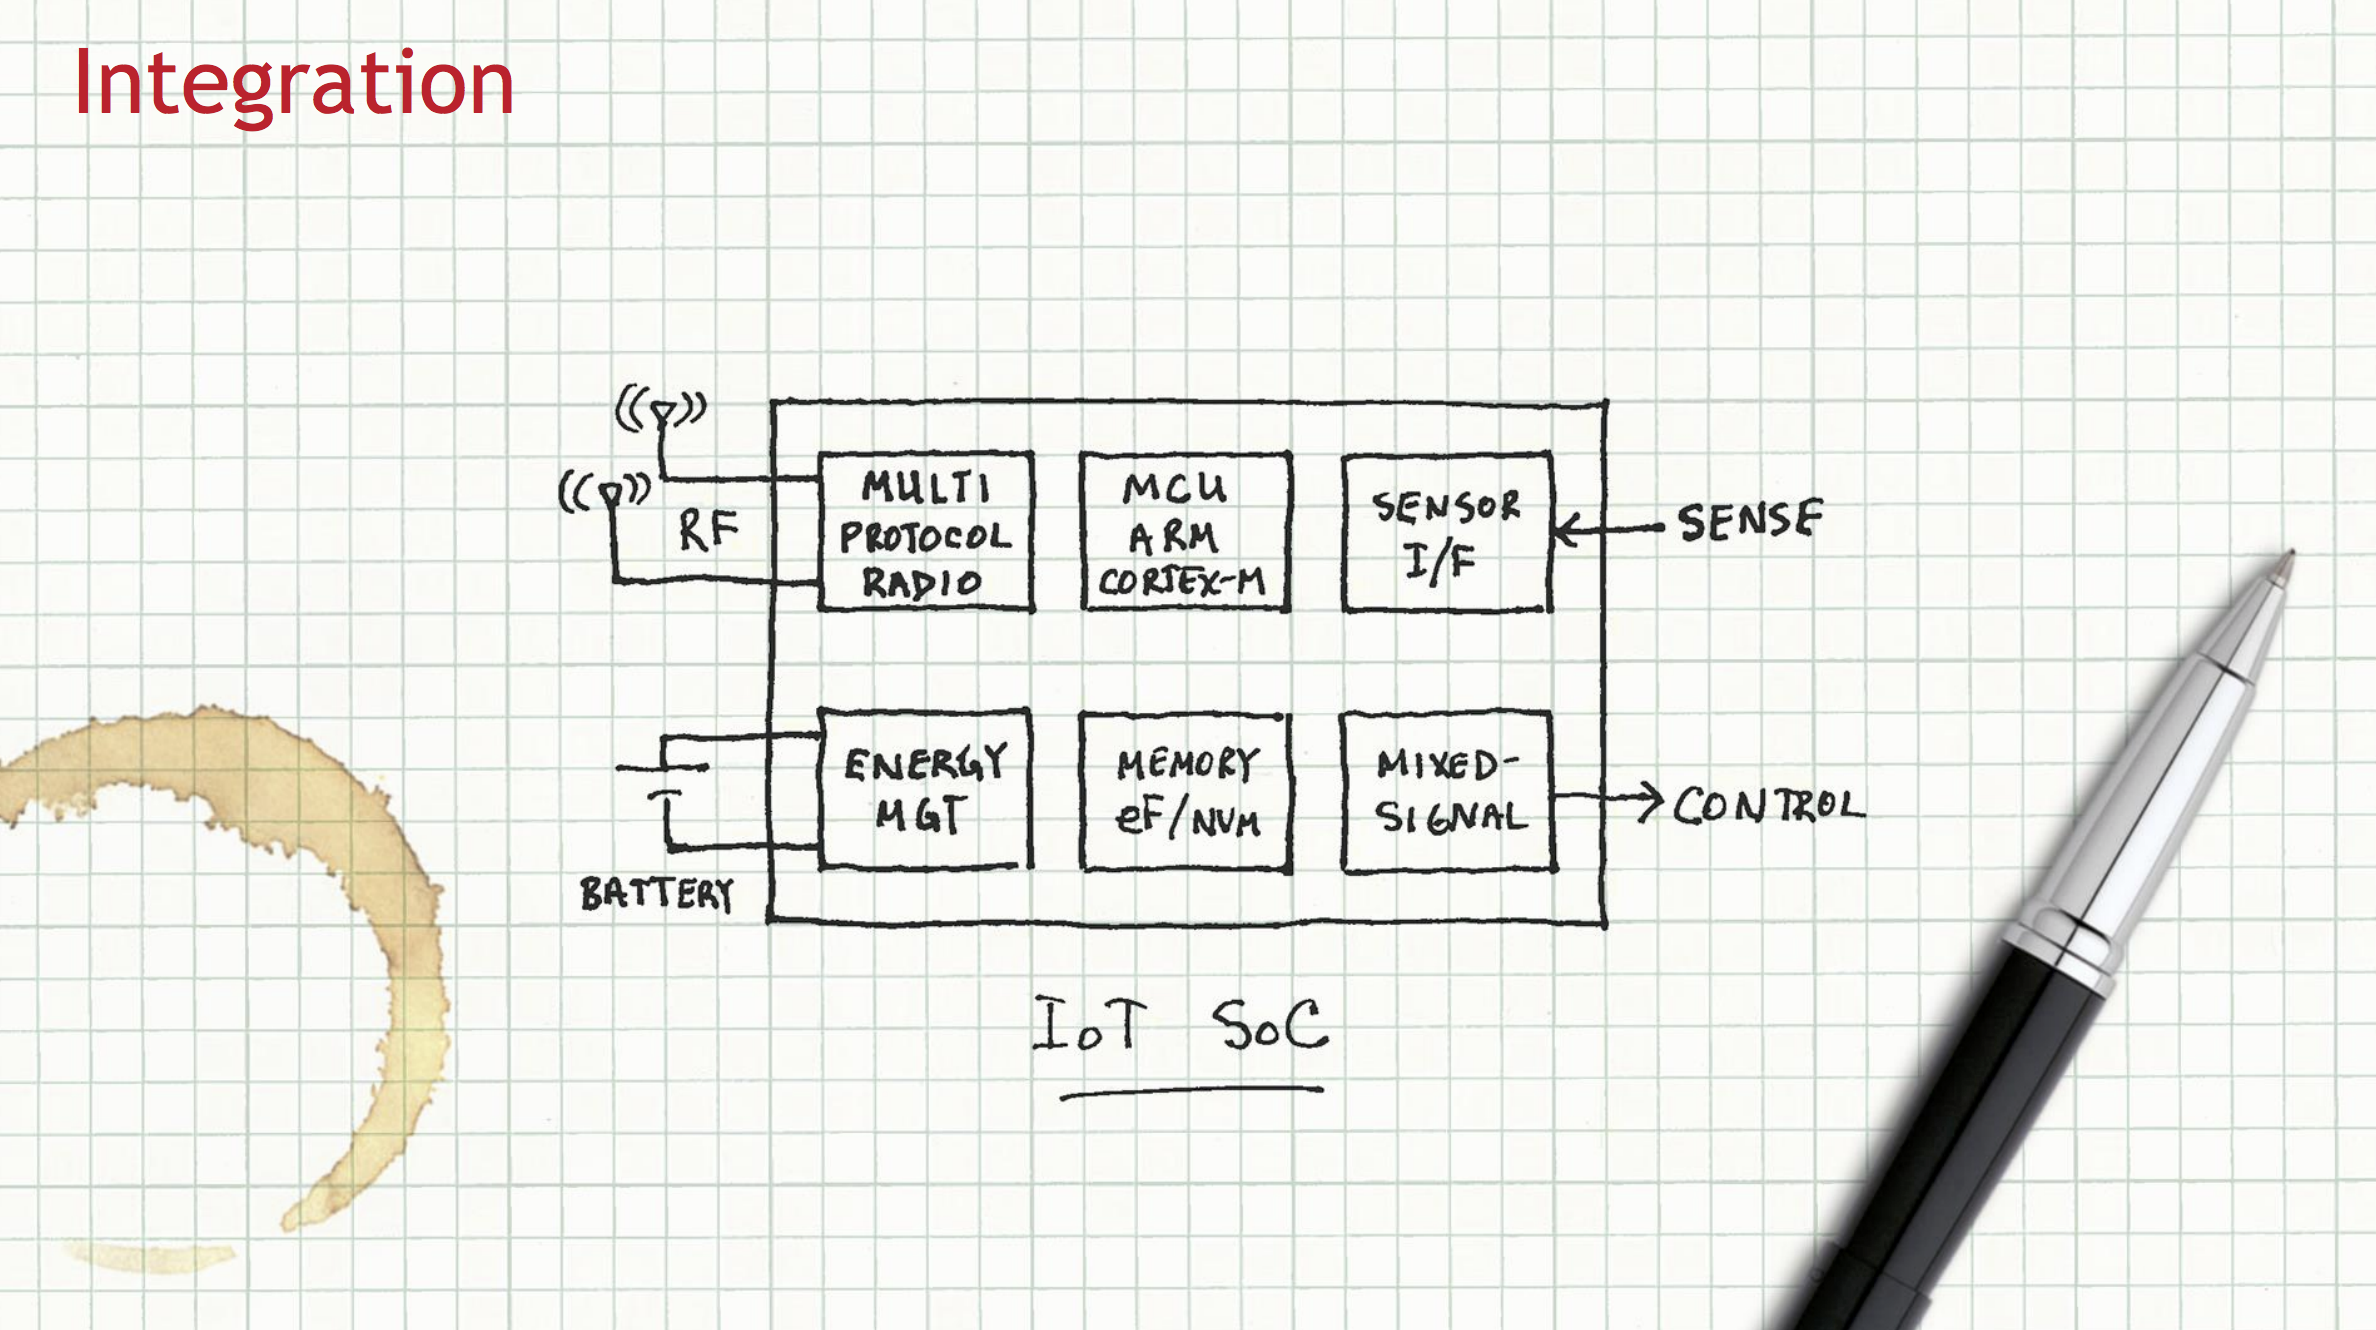 Integration
RF
MULTI
PROTOCOL
RADIO
MCU
ARM
CORTEX-M
SENSOR
I/F
SENSE
BATTERY
ENERGY
MGT
MEMORY
eF/NVM
MIXED-
SIGNAL
CONTROL
IoT SoC